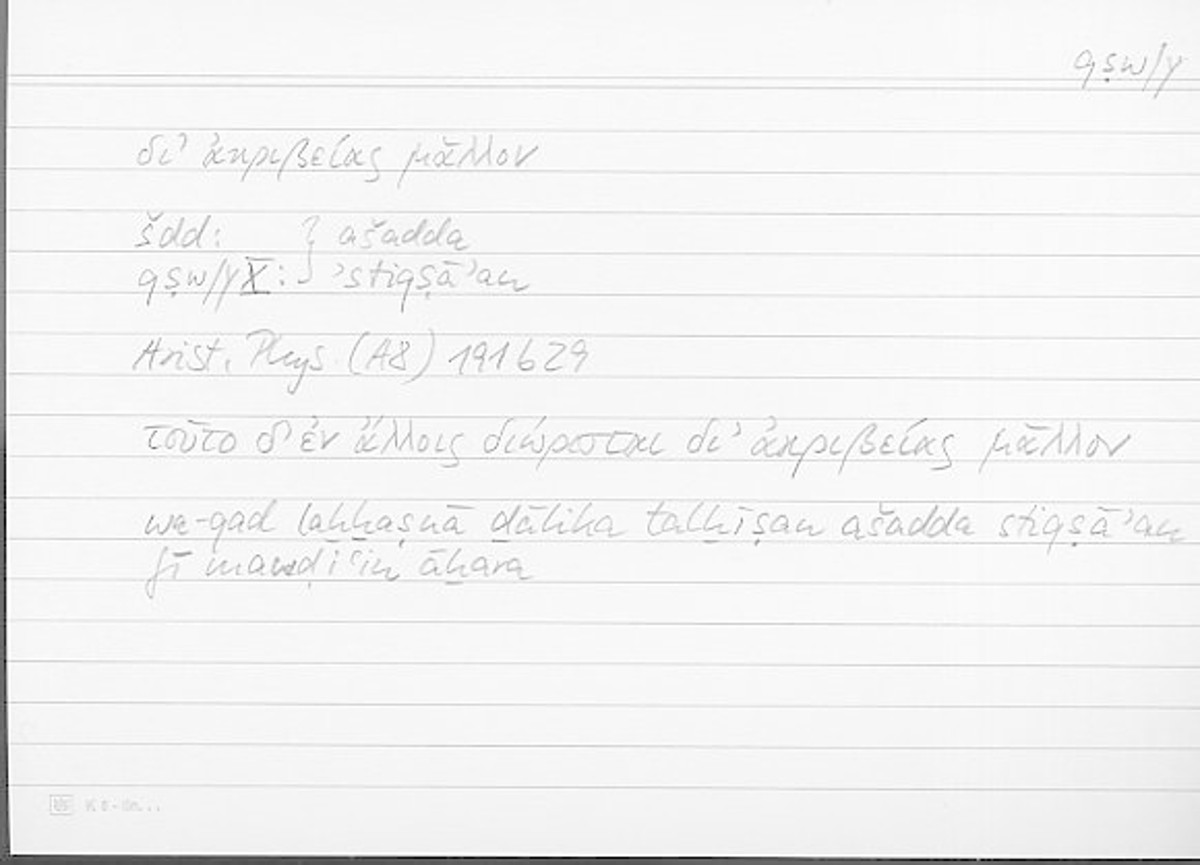 qṣw/y
δι' ἀκριβείας μᾶλλον
šdd: } ašadda
qṣw/y X: } 'stiqṣā'an
Arist. Phys (A8) 191b29
τοῦτο δ' ἐν ἄλλοις διώρισται δι' ἀκριβείας μᾶλλον
wa-qad laḫḫaṣnā ḏālika talḫīṣan ašadda stiqṣā'an
fī mawḍiʿin āḫara